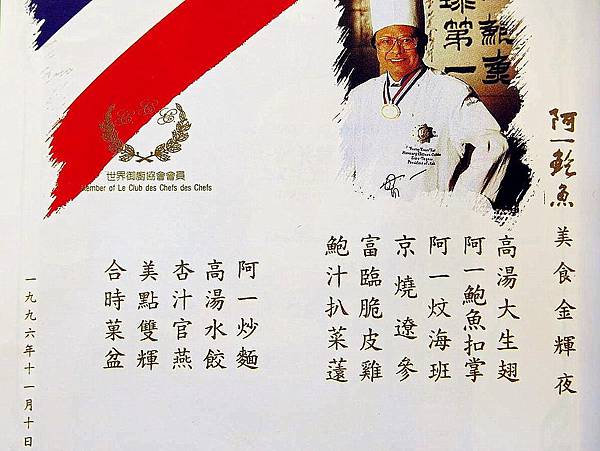 阿一鮑魚美食金輝夜
高湯大生翅
阿一鮑魚扣掌
阿一炆海班
京燒遼參
富臨脆皮雞
鮑汁扒菜薳
阿一炒麵
高湯水餃
杏汁官燕
美點雙輝
合時菓盆
一九九六年十一月十日
世界御廚協會會員
Member of Le Club des Chefs des Chefs
CCC
球第一